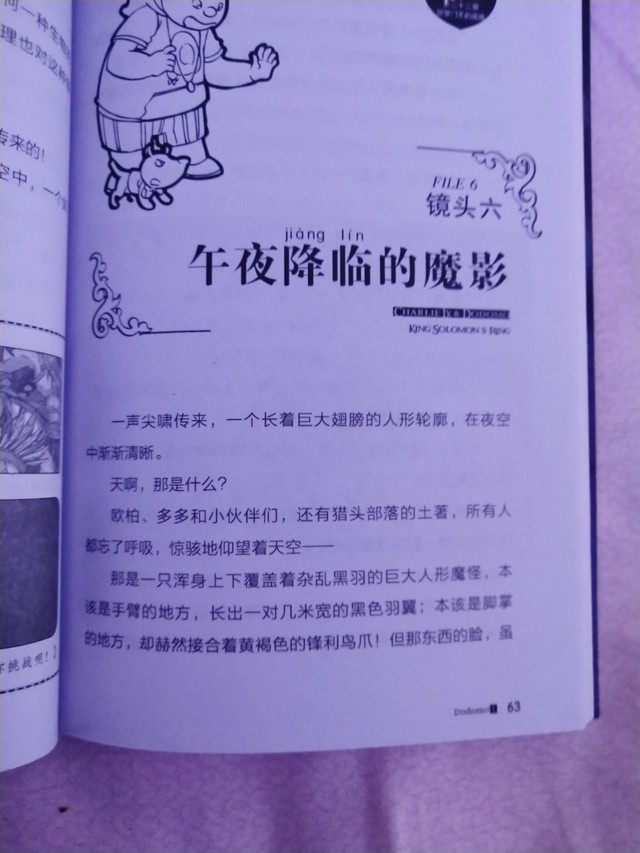 何一种生物
理也对这种
传来的!
空中,一个
不挑战呢!
FILE 6
镜头六
jiàng lín
午夜降临的魔影
CHARLIE Ⅸ & DODOMO
KING SOLOMON'S RING
一声尖啸传来,一个长着巨大翅膀的人形轮廓,在夜空
中渐渐清晰。
天啊,那是什么?
欧柏、多多和小伙伴们,还有猎头部落的土著,所有人
都忘了呼吸,惊骇地仰望着天空——
那是一只浑身上下覆盖着杂乱黑羽的巨大人形魔怪,本
该是手臂的地方,长出一对几米宽的黑色羽翼;本该是脚掌
的地方,却赫然接合着黄褐色的锋利鸟爪!但那东西的脸,虽
Dodomo 63